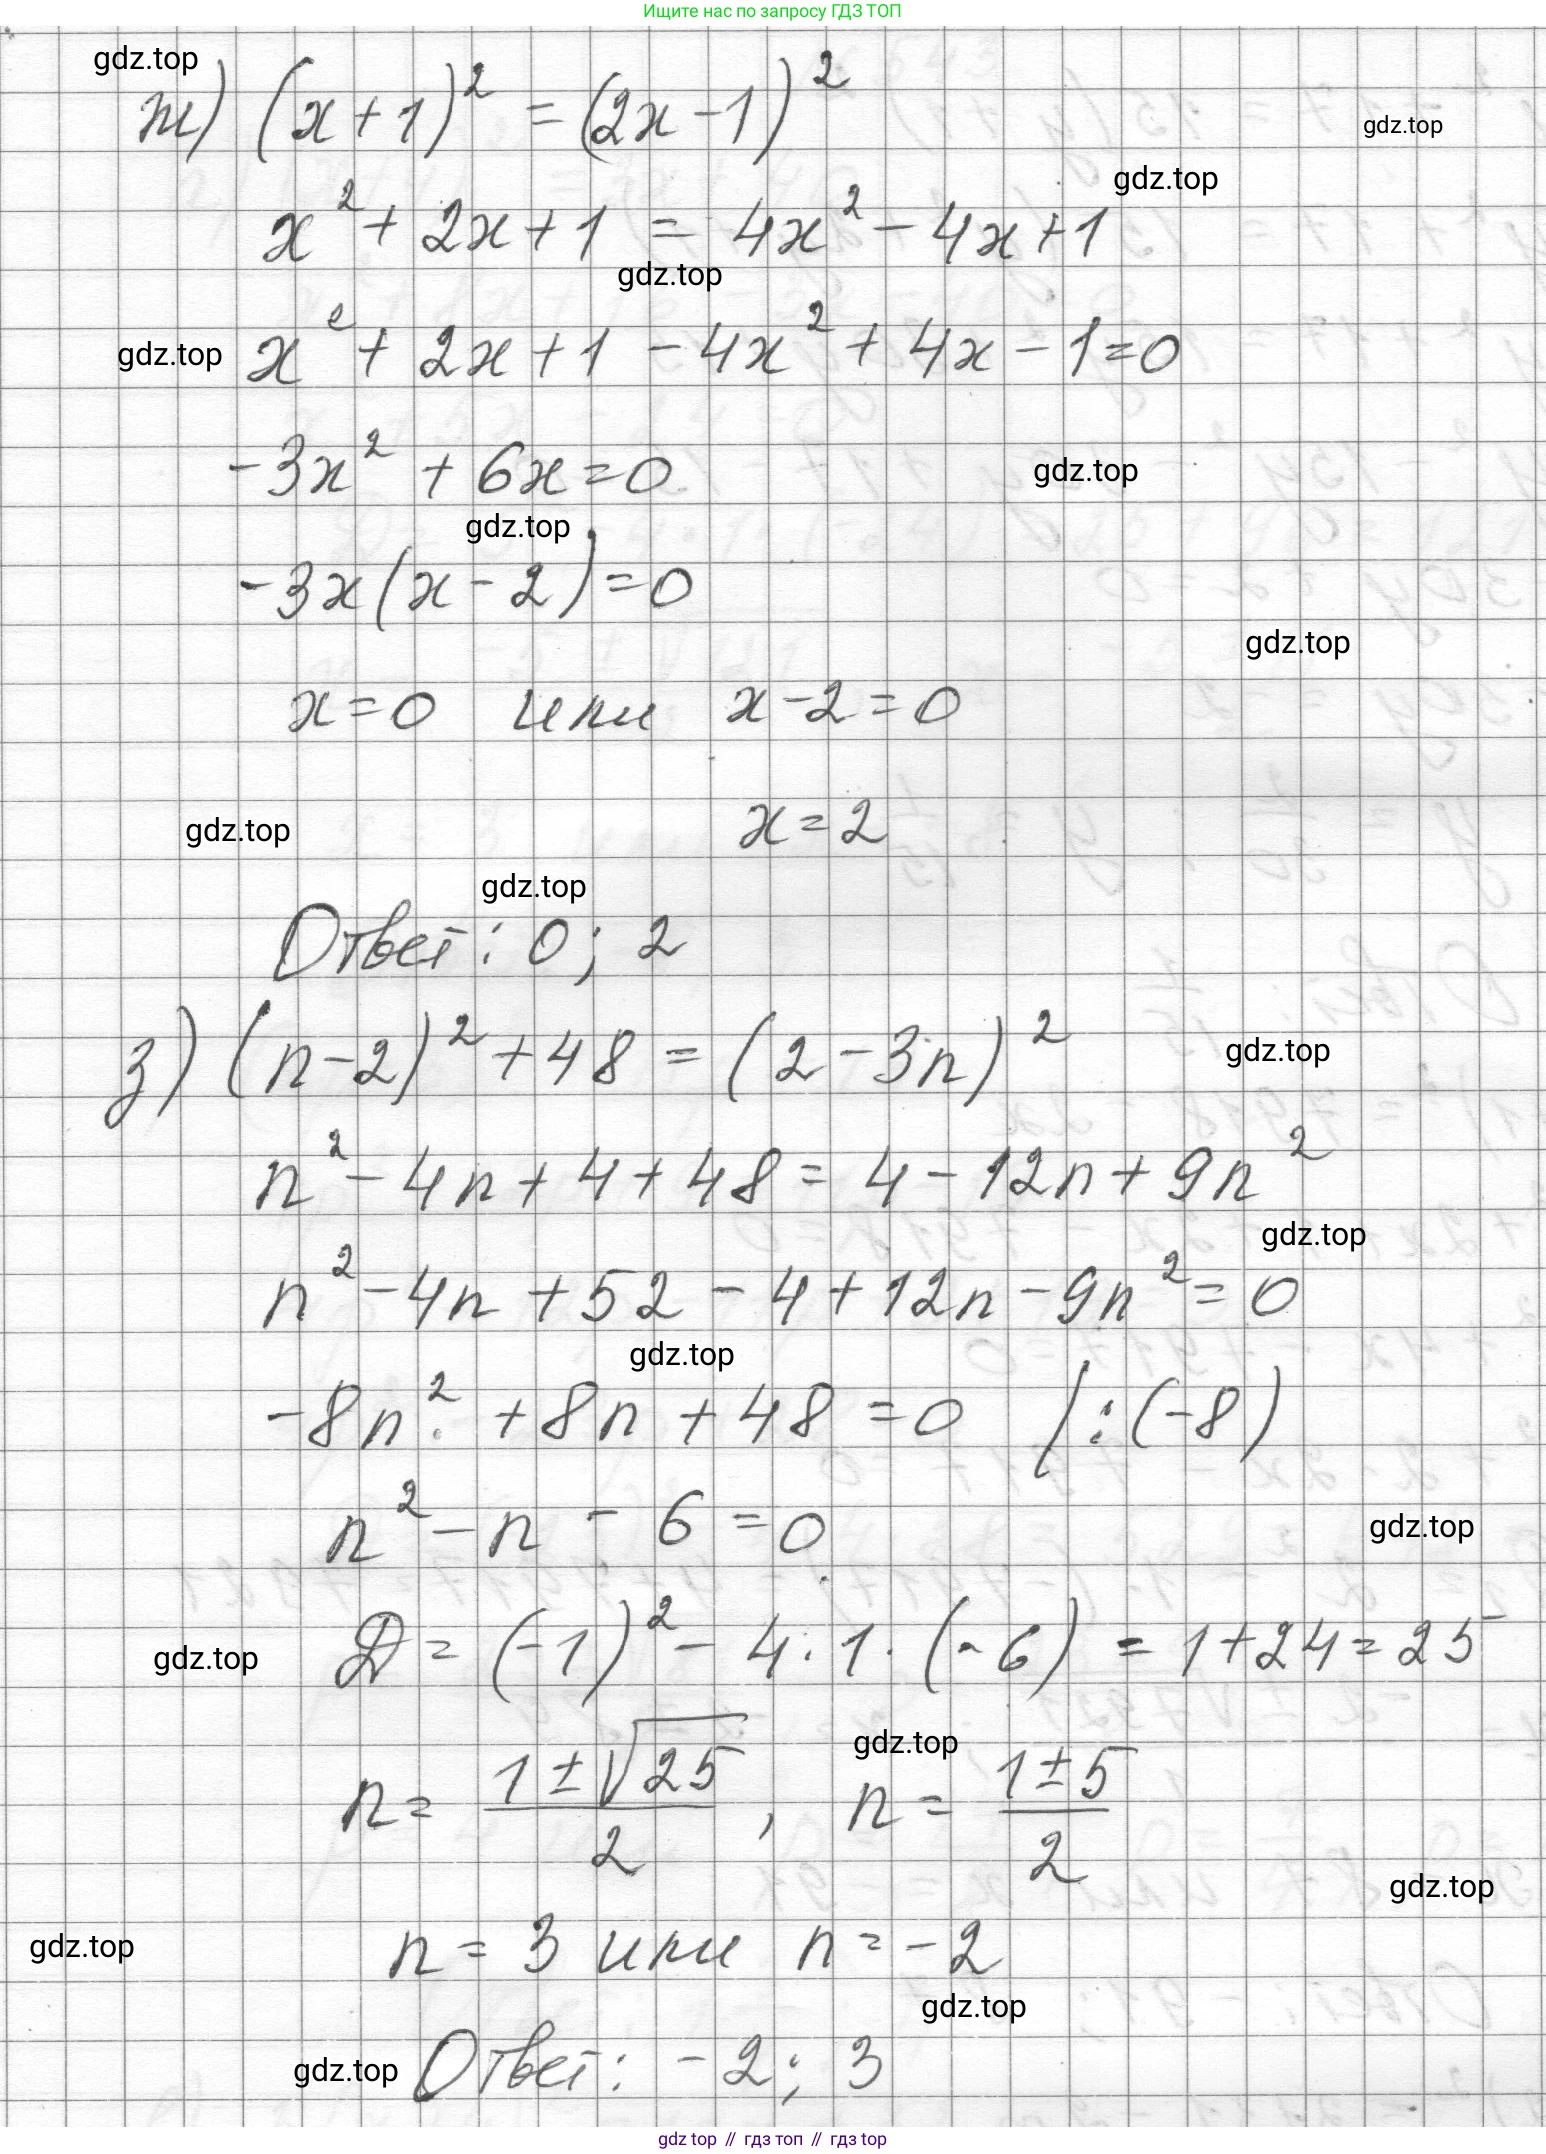 Ищите нас по запросу ГДЗ ТОП
gdz.top
ж) (x+1)² = (2x-1)²
gdz.top
gdz.top
x² + 2x + 1 = 4x² - 4x + 1
gdz.top
gdz.top
x² + 2x + 1 - 4x² + 4x - 1 = 0
-3x² + 6x = 0
gdz.top
gdz.top
-3x(x - 2) = 0
gdz.top
x = 0 или x - 2 = 0
gdz.top
x = 2
gdz.top
Ответ: 0; 2
з) (n-2)² + 48 = (2 - 3n)²
gdz.top
n² - 4n + 4 + 48 = 4 - 12n + 9n²
gdz.top
n² - 4n + 52 - 4 + 12n - 9n² = 0
gdz.top
-8n² + 8n + 48 = 0 /:(-8)
n² - n - 6 = 0
gdz.top
gdz.top
D = (-1)² - 4·1·(-6) = 1 + 24 = 25
gdz.top
n = (1 ± √25)/2, n = (1 ± 5)/2
gdz.top
gdz.top
n = 3 или n = -2
gdz.top
gdz.top
Ответ: -2; 3
gdz top // гдз топ // гдз top